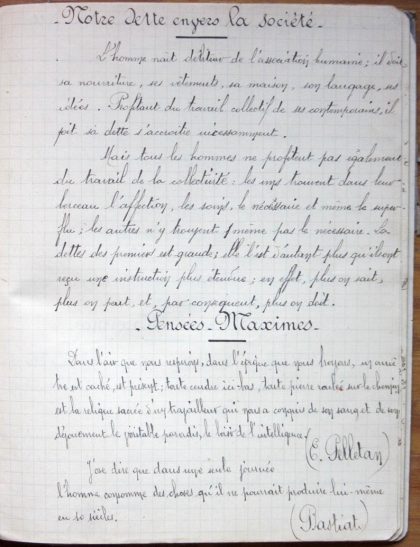 - Notre dette envers la société -
L'homme naît débiteur de l'association humaine ; il doit
sa nourriture, ses vêtements, sa maison, son langage, ses
idées. Profitant du travail collectif de ses contemporains, il
voit sa dette s'accroître incessamment.
Mais tous les hommes ne profitent pas également
du travail de la collectivité : les uns trouvent dans leur
berceau l'affection, les soins, le nécessaire et même le super-
flu ; les autres n'y trouvent même pas le nécessaire. La
dettes des premiers est grande ; elle l'est d'autant plus qu'ils ont
reçu une instruction plus étendue ; en effet, plus on sait,
plus on peut, et, par conséquent, plus on doit.
- Pensées - Maximes -
Dans l'air que nous respirons, dans l'épi que nous broyons, un ancê-
tre est caché, est présent ; toute cendre ici-bas, toute pierre sur le chemin
est la relique sacrée d'un travailleur qui nous a conquis de son sang et de son
dévouement le véritable paradis, le loisir de l'intelligence.
(E. Pelletan)
J'ose dire que dans une seule journée
l'homme consomme des choses qu'il ne pourrait produire lui-même
en 10 siècles.
(Bastiat)